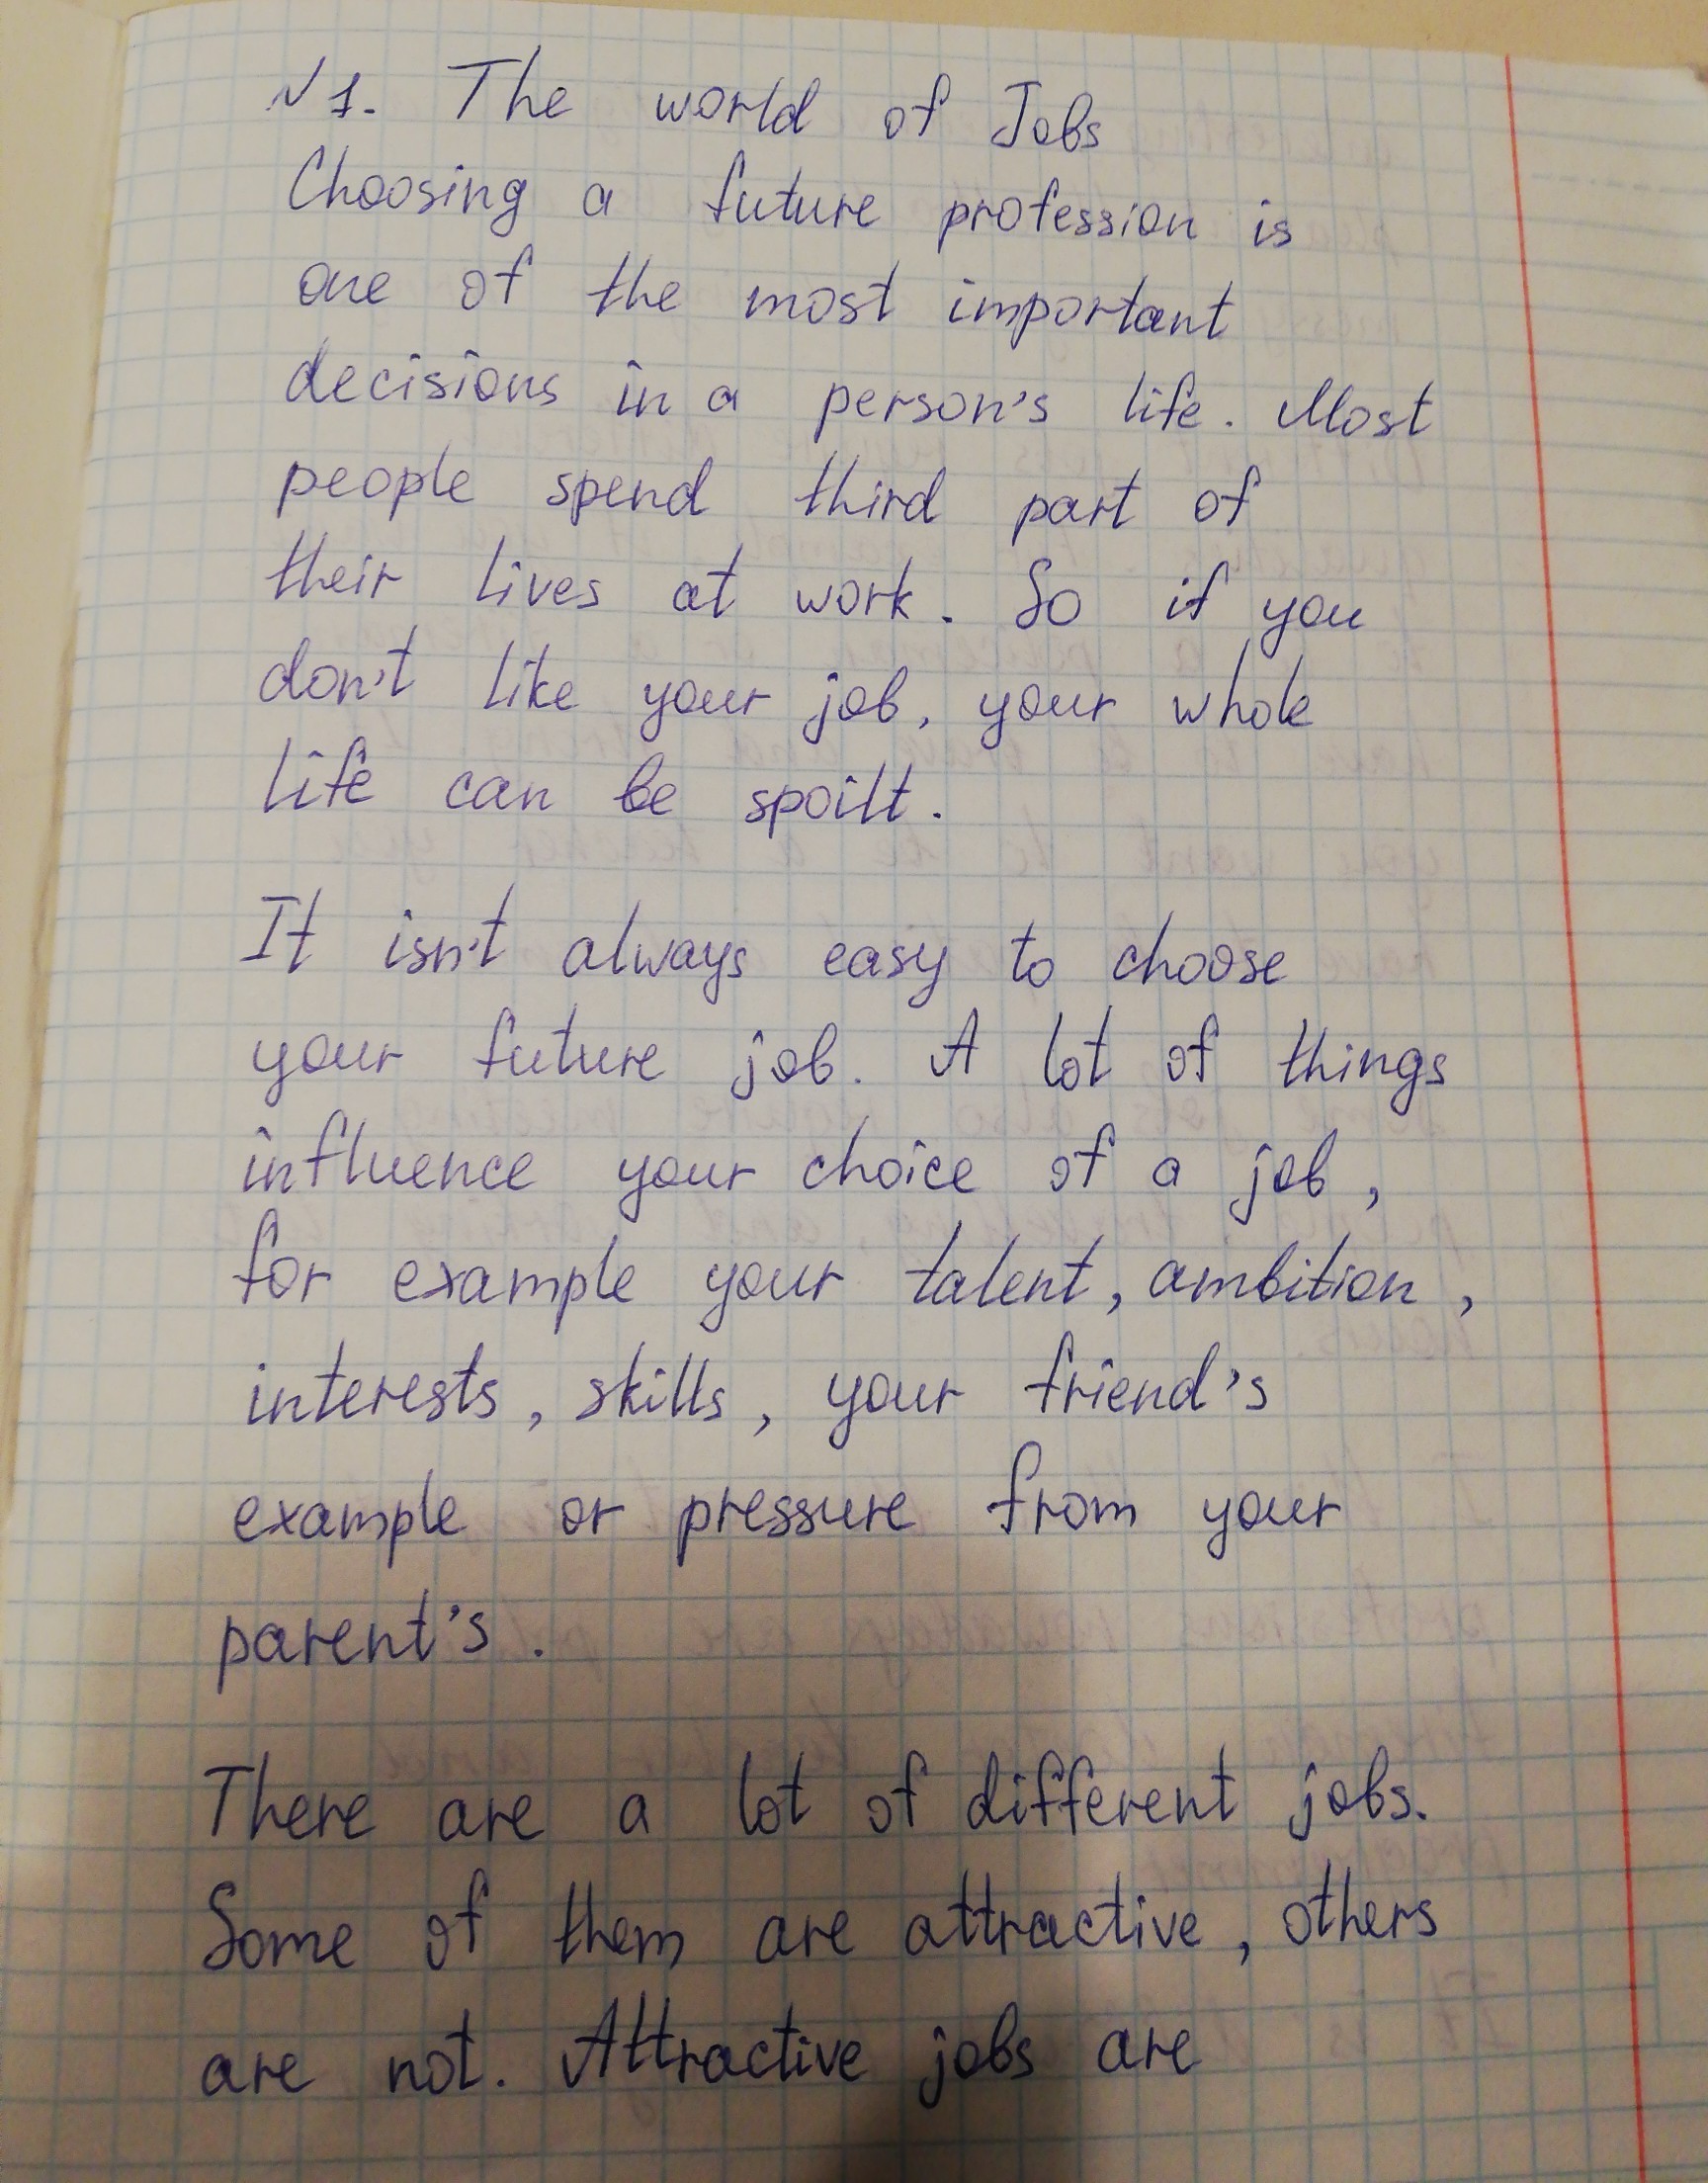 №1. The world of Jobs
Choosing a future profession is
one of the most important
decisions in a person's life. Most
people spend third part of
their lives at work. So if you
don't like your job, your whole
life can be spoilt.
It isn't always easy to choose
your future job. A lot of things
influence your choice of a job,
for example your talent, ambition,
interests, skills, your friend's
example or pressure from your
parent's.
There are a lot of different jobs.
Some of them are attractive, others
are not. Attractive jobs are